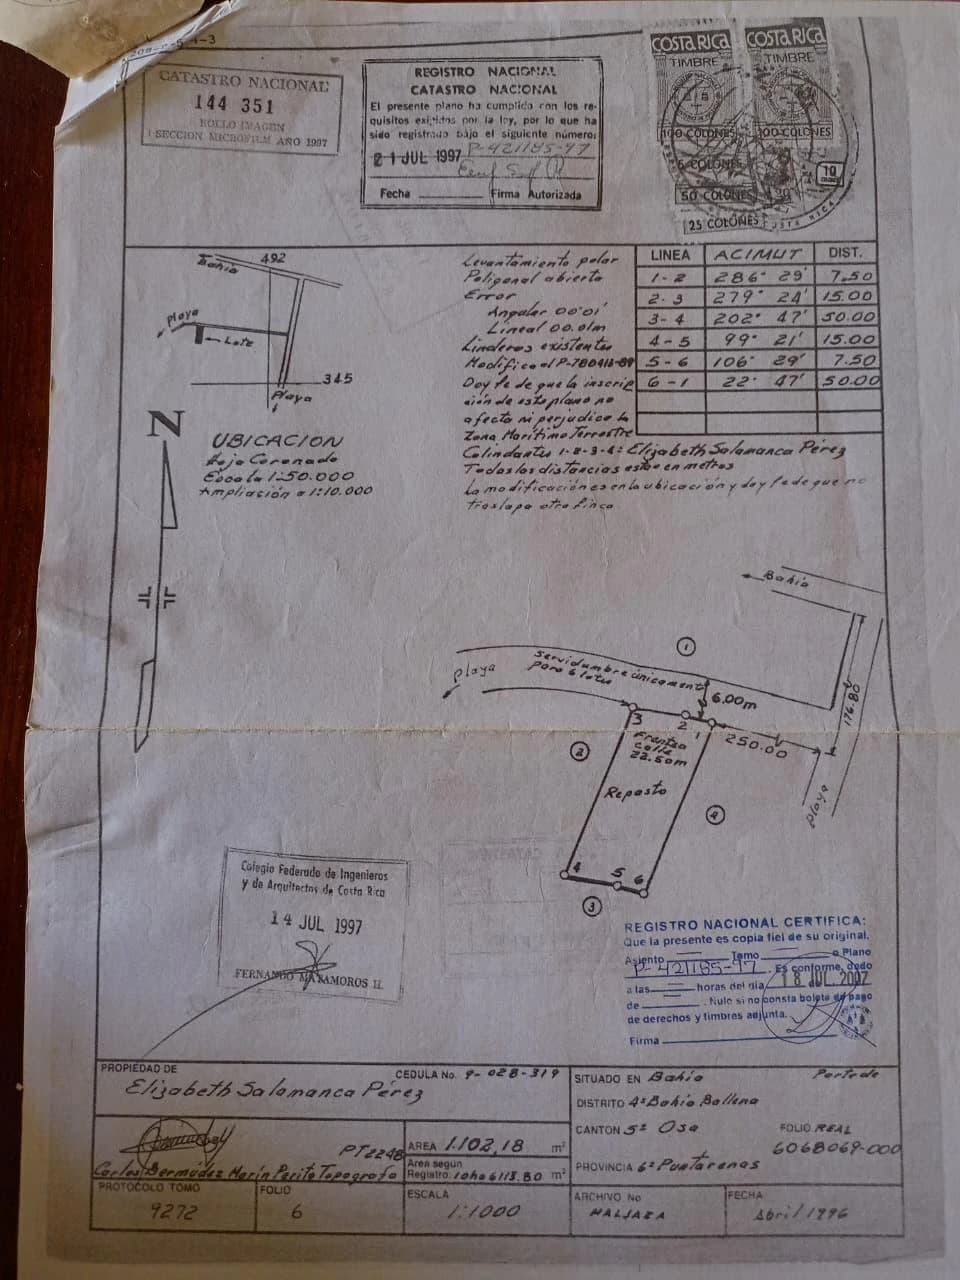 CATASTRO NACIONAL
144 351
ROLLO IMAGEN
1 SECCION MICROFILM AÑO 1997
REGISTRO NACIONAL
CATASTRO NACIONAL
El presente plano ha cumplido con los re-
quisitos exigidos por la ley, por lo que ha
sido registrado bajo el siguiente número:
21 JUL 1997 P-421185-97
Fecha Firma Autorizada
COSTA RICA COSTA RICA
TIMBRE TIMBRE
100 COLONES 100 COLONES
5 COLONES
10 COLONES
50 COLONES
25 COLONES
COSTA RICA
Bahía 492
Playa
Lote
345
Playa
N
UBICACION
Hoja Coronado
Escala 1:50.000
Ampliación a 1:10.000
Levantamiento polar
Poligonal abierta
Error
Angular 00°01'
Lineal 00.01m
Linderos existentes
Modifica al P-780416-89
Doy fe de que la inscrip
ción de este plano no
afecta ni perjudica la
Zona Marítimo Terrestre
Colindantes 1-2-3-4: Elizabeth Salamanca Pérez
Todas las distancias estan en metros
La modificación es en la ubicación y doy fe de que no
traslapa otra finca
LINEA ACIMUT DIST.
1-2 286° 29' 7.50
2-3 279° 24' 15.00
3-4 202° 47' 50.00
4-5 99° 21' 15.00
5-6 106° 29' 7.50
6-1 22° 47' 50.00
Bahía
1
Servidumbre únicamente
para 6 lotes
Playa
6.00m
176.80
3 2 1
250.00
2
Frente a
calle
22.50m
Repasto
4
Playa
4 5 6
3
Colegio Federado de Ingenieros
y de Arquitectos de Costa Rica
14 JUL 1997
FERNANDO MATAMOROS H.
REGISTRO NACIONAL CERTIFICA:
Que la presente es copia fiel de su original.
Asiento Tomo o Plano
P-421185-97. Es conforme, dado
a las horas del día 18 JUL. 2007
de . Nulo si no consta boleta de pago
de derechos y timbres adjunta.
Firma
PROPIEDAD DE CEDULA No. 9-028-319
Elizabeth Salamanca Pérez
SITUADO EN Bahía Parte de
DISTRITO 4º Bahía Ballena
CANTON 5º Osa FOLIO REAL
6068069-000
PROVINCIA 6º Puntarenas
PT2248
Carlos Bermúdez Marín Perito Topografo
AREA 1.102,18 m²
Area según
Registro. 10ha 6113.80 m²
PROTOCOLO TOMO
9272
FOLIO
6
ESCALA
1:1000
ARCHIVO No
FECHA
Abril 1996